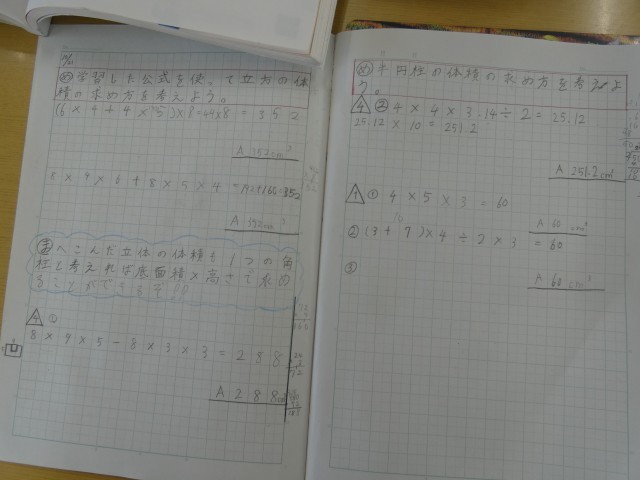 め 学習した公式を使って立方の体
積の求め方を考えよう。
(6×4+4×5)×8=44×8=352
A 352cm³
8×4×6+8×5×4=192+160=352
A 352cm³
ま へこんだ立体の体積も1つの角
柱と考えれば底面積×高さで求め
ることができるぞ!!
4 ①
8×9×5-8×3×3=288
A 288cm³
め 半円柱の体積の求め方を考えよ
う。
4 ② 4×4×3.14÷2=25.12
25.12×10=251.2
A 251.2cm³
1 ① 4×5×3=60
A 60cm³
② (3+7)×4÷2×3=60
10
A 60cm³
③